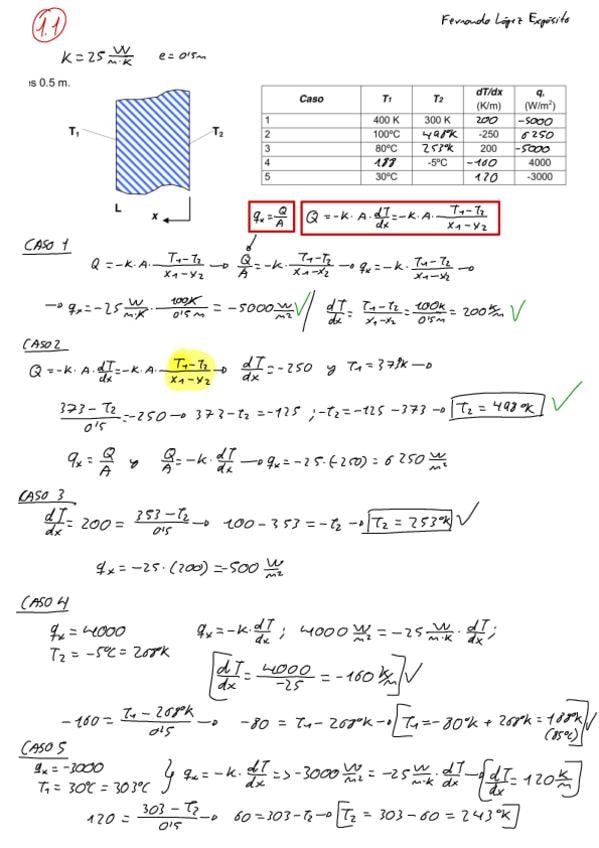 1.1
Fernando López Expósito
K = 25 W/m·K   e = 0'5m
is 0.5 m.
T₁
T₂
L
x
Caso | T₁ | T₂ | dT/dx (K/m) | qₓ (W/m²)
1 | 400 K | 300 K | 200 | -5000
2 | 100ºC | 498ºK | -250 | 6250
3 | 80ºC | 253ºK | 200 | -5000
4 | 188 | -5ºC | -160 | 4000
5 | 30ºC | | 120 | -3000
qₓ = Q/A
Q = -K·A·dT/dx = -K·A·(T₁-T₂)/(x₁-x₂)
CASO 1
Q = -K·A·(T₁-T₂)/(x₁-x₂) → Q/A = -K·(T₁-T₂)/(x₁-x₂) → qₓ = -K·(T₁-T₂)/(x₁-x₂) →
→ qₓ = -25 W/m·K · 100K/0'5m = -5000 W/m² ✓ / dT/dx = (T₁-T₂)/(x₁-x₂) = 100K/0'5m = 200 K/m ✓
CASO 2
Q = -K·A·dT/dx = -K·A·(T₁-T₂)/(x₁-x₂) → dT/dx = -250 y T₁ = 373ºK →
(373-T₂)/0'5 = -250 → 373-T₂ = -125 ; -T₂ = -125-373 → T₂ = 498ºK ✓
qₓ = Q/A y Q/A = -K·dT/dx → qₓ = -25·(-250) = 6250 W/m²
CASO 3
dT/dx = 200 = (353-T₂)/0'5 → 100-353 = -T₂ → T₂ = 253ºK ✓
qₓ = -25·(200) = -500 W/m²
CASO 4
qₓ = 4000   qₓ = -K·dT/dx ; 4000 W/m² = -25 W/m·K · dT/dx ;
T₂ = -5ºC = 268ºK
[dT/dx = 4000/-25 = -160 K/m] ✓
-160 = (T₁-268ºK)/0'5 → -80 = T₁-268ºK → [T₁ = -80ºK + 268ºK = 188ºK (85ºC)] ✓
CASO 5
qₓ = -3000
T₁ = 30ºC = 303ºC } qₓ = -K·dT/dx => -3000 W/m² = -25 W/m·K · dT/dx → [dT/dx = 120 K/m]
120 = (303-T₂)/0'5 → 60 = 303-T₂ → [T₂ = 303-60 = 243ºK]